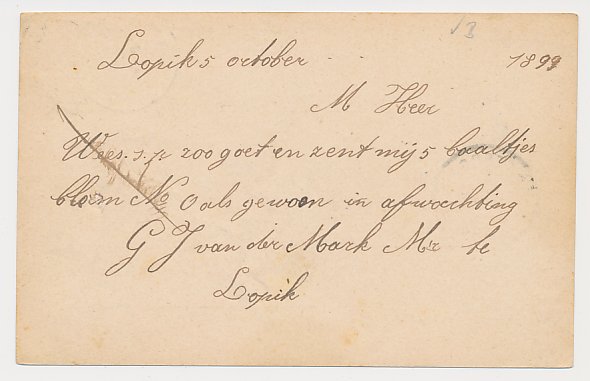 Lopik 5 october 1899
M Heer
Wees. s. p zoo goet en zent mij 5 baaltjes
bloem No 0 als gewoon in afwachting
G J van der Mark Mr te
Lopik